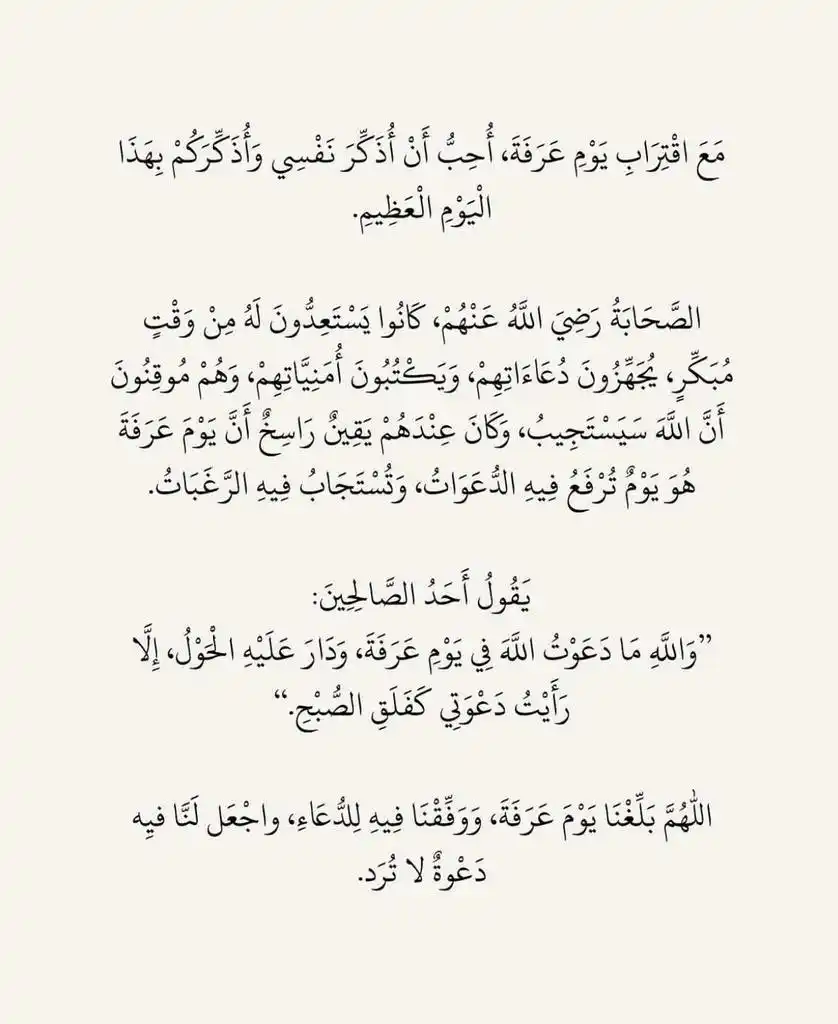 مَعَ اقْتِرَابِ يَوْمِ عَرَفَةَ، أُحِبُّ أَنْ أُذَكِّرَ نَفْسِي وَأُذَكِّرَكُمْ بِهَذَا
الْيَوْمِ الْعَظِيمِ.
الصَّحَابَةُ رَضِيَ اللَّهُ عَنْهُمْ، كَانُوا يَسْتَعِدُّونَ لَهُ مِنْ وَقْتٍ
مُبَكِّرٍ، يُجَهِّزُونَ دُعَاءَاتِهِمْ، وَيَكْتُبُونَ أُمَنِيَّاتِهِمْ، وَهُمْ مُوقِنُونَ
أَنَّ اللَّهَ سَيَسْتَجِيبُ، وَكَانَ عِنْدَهُمْ يَقِينٌ رَاسِخٌ أَنَّ يَوْمَ عَرَفَةَ
هُوَ يَوْمٌ تُرْفَعُ فِيهِ الدُّعَوَاتُ، وَتُسْتَجَابُ فِيهِ الرَّغَبَاتُ.
يَقُولُ أَحَدُ الصَّالِحِينَ:
”وَاللَّهِ مَا دَعَوْتُ اللَّهَ فِي يَوْمِ عَرَفَةَ، وَدَارَ عَلَيْهِ الْحَوْلُ، إِلَّا
رَأَيْتُ دَعْوَتِي كَفَلَقِ الصُّبْحِ.“
اللَّهُمَّ بَلِّغْنَا يَوْمَ عَرَفَةَ، وَوَفِّقْنَا فِيهِ لِلدُّعَاءِ، واجْعَل لَنَّا فيِه
دَعْوةٌ لا تُرَد.